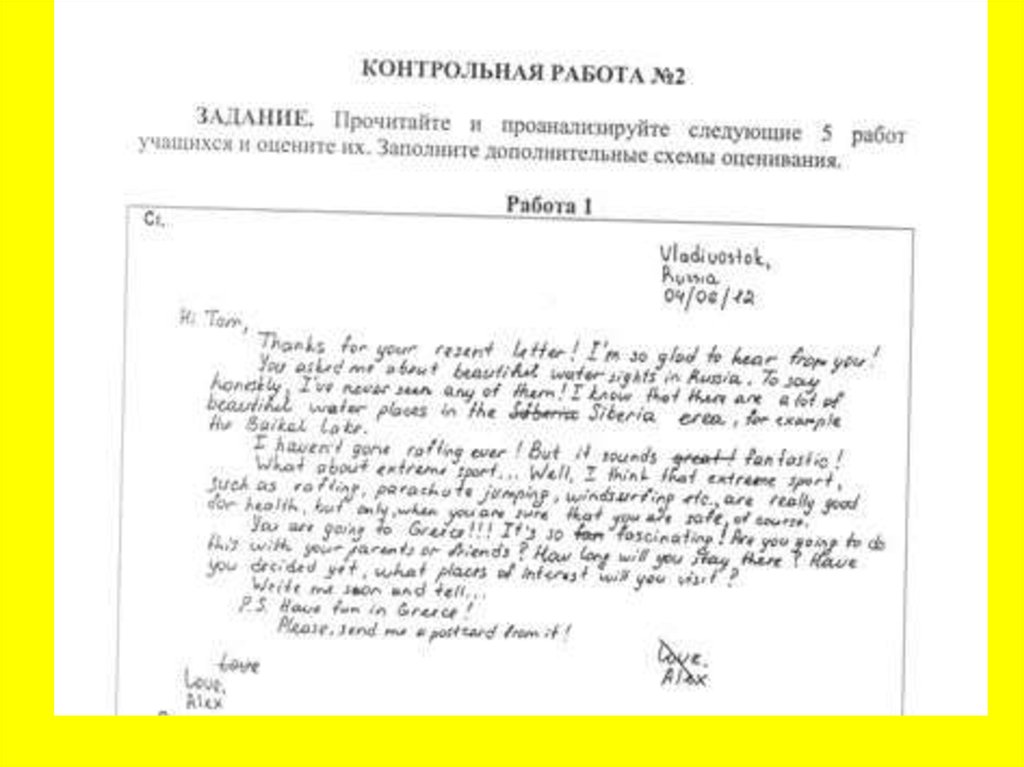 КОНТРОЛЬНАЯ РАБОТА №2
ЗАДАНИЕ. Прочитайте и проанализируйте следующие 5 работ
учащихся и оцените их. Заполните дополнительные схемы оценивания.
Работа 1
C1.
Vladivostok,
Russia
04/06/12
Hi Tom,
Thanks for your resent letter! I'm so glad to hear from you!
You asked me about beautiful water sights in Russia. To say
honestly, I've never seen any of them! I know that there are a lot of
beautiful water places in the Siberia erea, for example
the Baikal Lake.
I haven't gone rafting ever! But it sounds great! fantastic!
What about extreme sport... Well, I think that extreme sport,
such as rafting, parachute jumping, windsurfing etc., are really good
for health, but only, when you are sure that you are safe, of course.
You are going to Greece!!! It's so fan fascinating! Are you going to do
this with your parents or friends? How long will you stay there? Have
you decided yet, what places of interest will you visit?
Write me soon and tell...
P.S. Have fun in Greece!
Please, send me a postcard from it!
Love
Love,
Alex
Love,
Alex